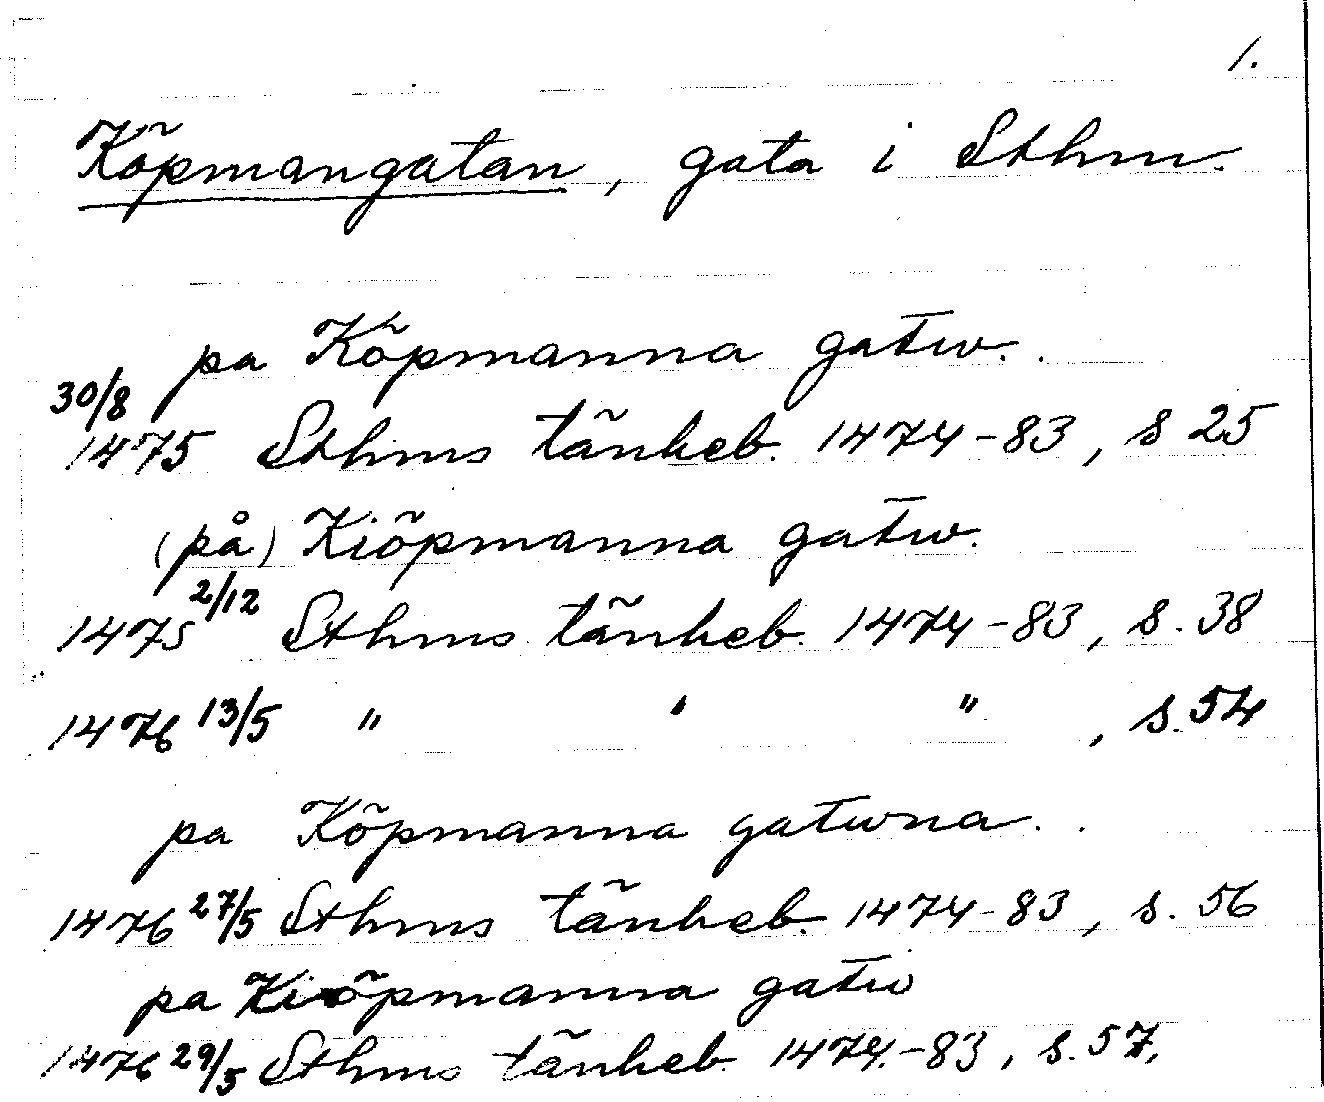 1.
Köpmangatan, gata i Sthm.
pa Köpmanna gatw..
30/8
1475 Sthms tänkeb. 1474-83, s 25
(på) Kiöpmanna gatw.
1475 2/12 Sthms tänkeb. 1474-83, s. 38
1476 13/5 " " " , s. 54
pa Köpmanna gatwna..
1476 27/5 Sthms tänkeb. 1474-83, s. 56
pa Kiöpmanna gatw
1476 29/5 Sthms tänkeb. 1474.-83, s. 57.